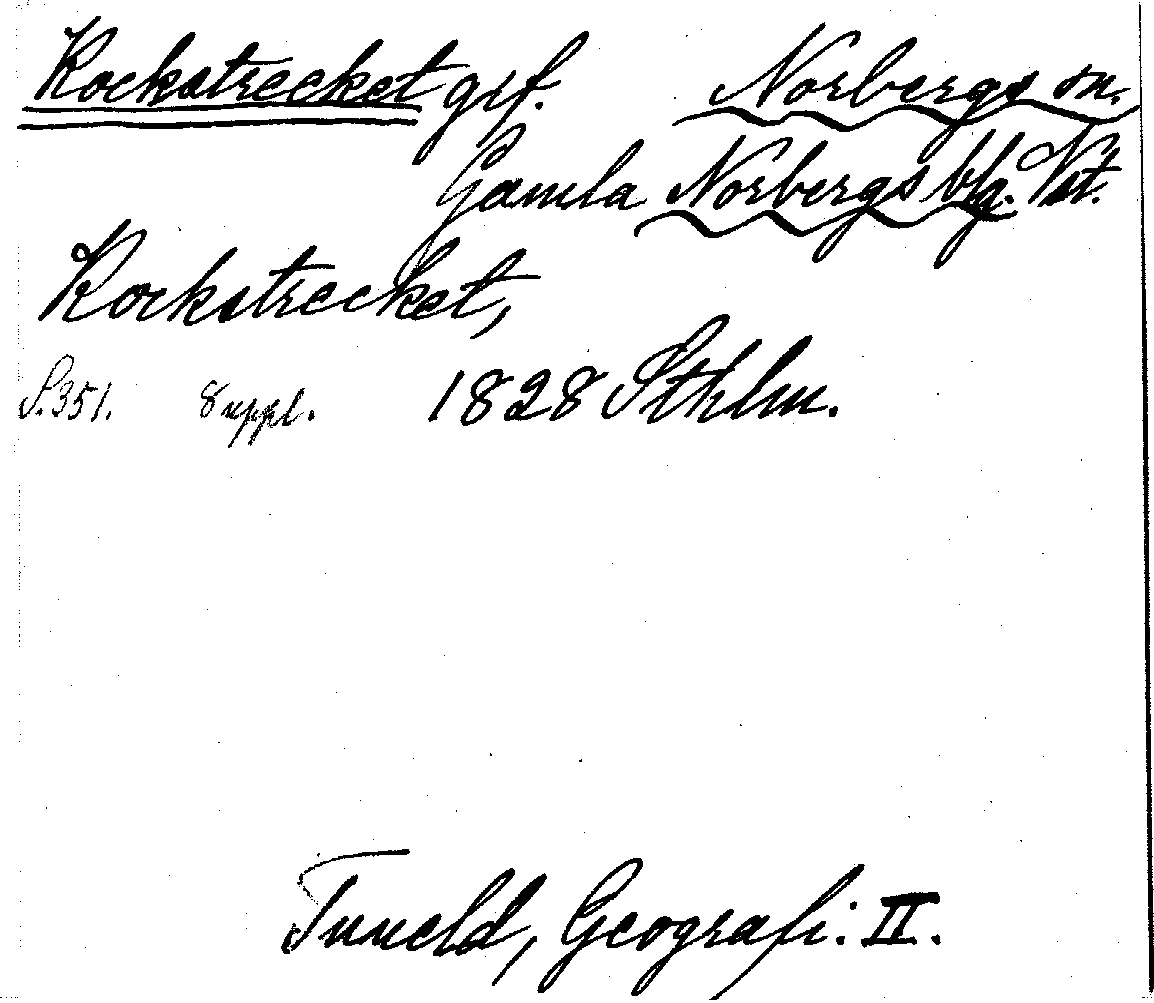 Rockstrecket grf. Norbergs sn.
Gamla Norbergs blg. Vst.
Rockstrecket,
S. 351. Suppl. 1828 Sthlm.
Tuneld, Geografi: II.